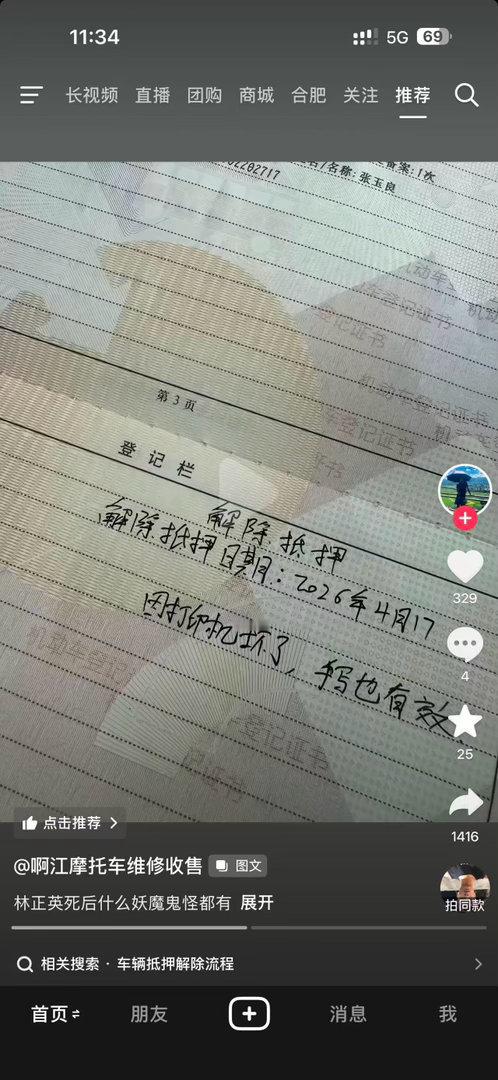 11:34
5G
69
长视频
直播
团购
商城
合肥
关注
推荐
名/名称:张玉良
第3页
登记栏
解除抵押
解除抵押日期:2026年4月17
因打印机坏了,手写也有效
机动车登记证书
329
4
25
1416
点击推荐
@啊江摩托车维修收售
图文
林正英死后什么妖魔鬼怪都有 展开
拍同款
相关搜索 · 车辆抵押解除流程
首页
朋友
消息
我